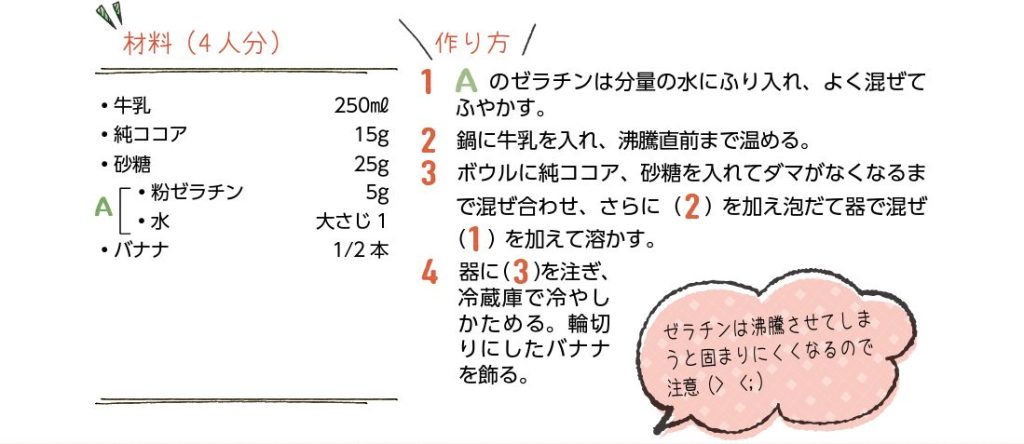 材料(4人分)
・牛乳 250㎖
・純ココア 15g
・砂糖 25g
A
・粉ゼラチン 5g
・水 大さじ1
・バナナ 1/2本
作り方
1 Aのゼラチンは分量の水にふり入れ、よく混ぜて
ふやかす。
2 鍋に牛乳を入れ、沸騰直前まで温める。
3 ボウルに純ココア、砂糖を入れてダマがなくなるま
で混ぜ合わせ、さらに(2)を加え泡だて器で混ぜ
(1)を加えて溶かす。
4 器に(3)を注ぎ、
冷蔵庫で冷やし
かためる。輪切
りにしたバナナ
を飾る。
ゼラチンは沸騰させてしま
うと固まりにくくなるので
注意(> <;)